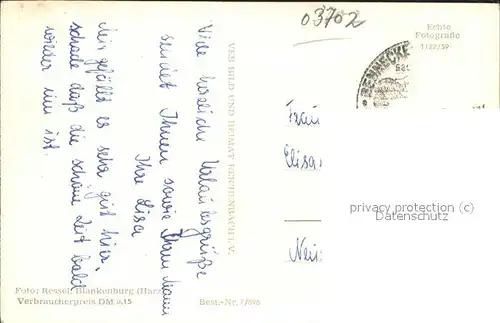 03702
Echte
Fotografie
1122/59
BENNECKE
Viele herzliche Urlaubsgrüße
sendet Ihnen sowie Ihrem Mann
Ihre Lisa
Mir gefällt es sehr gut hier,
schade daß die schöne Zeit bald
wieder um ist.
VEB BILD UND HEIMAT REICHENBACH I. V.
Frau
Elisa
privacy protection (c)
Datenschutz
Foto: Ressel, Blankenburg (Harz)
Verbraucherpreis DM 0,15
Best.-Nr. 7/896